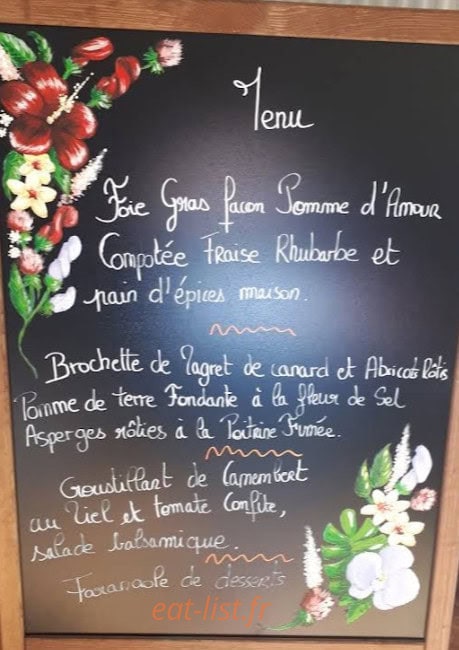 Menu
Foie Gras façon Pomme d'Amour
Compotée Fraise Rhubarbe et
pain d'épices maison.
Brochette de Magret de canard et Abricots Rôtis
Pomme de terre Fondante à la fleur de Sel
Asperges rôties à la Poitrine Fumée.
Croustillant de Camembert
au Miel et tomate Confite,
salade balsamique.
Farandole de desserts
eat-list.fr